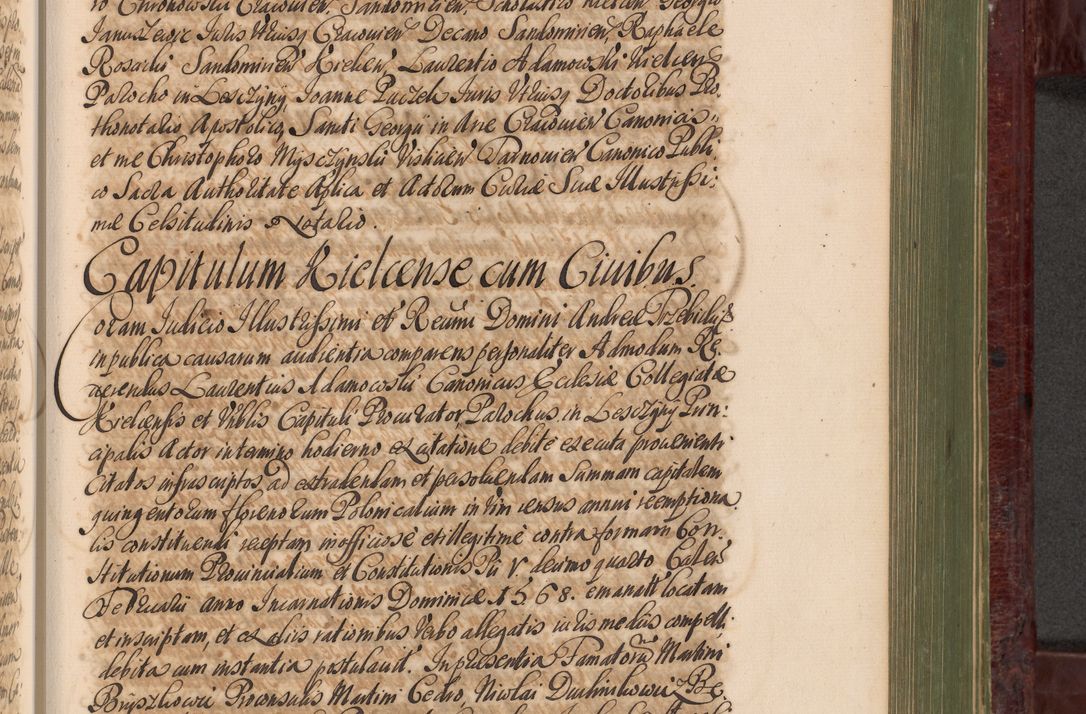 ro Chronowski Cracovien, Sandomirien, Scholastico Kielcen Georgio
Januszewic Juris Vtriusq Cracovien Decano Sandomirien, Raphaele
Rosarii Sandomirien Kielcen, Laurentio Adamowski Kielcen
Parocho in Lesczyny Joanne Paczek Juris Vtriusq Doctoribus Pro
thonotario Apostolico, Sancti Georgii in Arce Cracovien Canonicis
et me Christophoro Mysczynski Vislicien Tarnovien Canonico Publi
co Sacra Authoritate Aplica et Actorum Curiæ Suæ Illustrissi:
mæ Celsitudinis Notario.
Capitulum Kielcense cum Ciuibus.
Coram Judicio Illustrissimi et Reumi Domini Andreæ Trzebicky
in publica causarum audientia comparens personaliter Admodum Re.
uerendus Laurentius Adamowski Canonicus Ecclesiæ Collegiatæ
Kielcensis et Vblis Capituli Procurator, Parochus in Lesczyny Prin:
cipalis Actor in termino hodierno ex citatione debite executa prouenienti
Citatos infrascriptos ad extradendam et persoluendam Summam capitalem
quingentorum florenorum Polonicalium in vim census annui reemptiona
lis constituendi receptam inofficiose et illegitime contra formam Con.
stitutionum Prouincialium et Constitutionis Pii V. decimo quarto Calen
Februarii anno Incarnationis Dominicæ 1568. emanatt locatam
et inscriptam, et ex aliis rationibus Verbo allegatis iuris mediis compelli
debita cum instantia postulauit. In præsentia Famatorū Martini
Proconsulis Martini Cedro, Nicolai